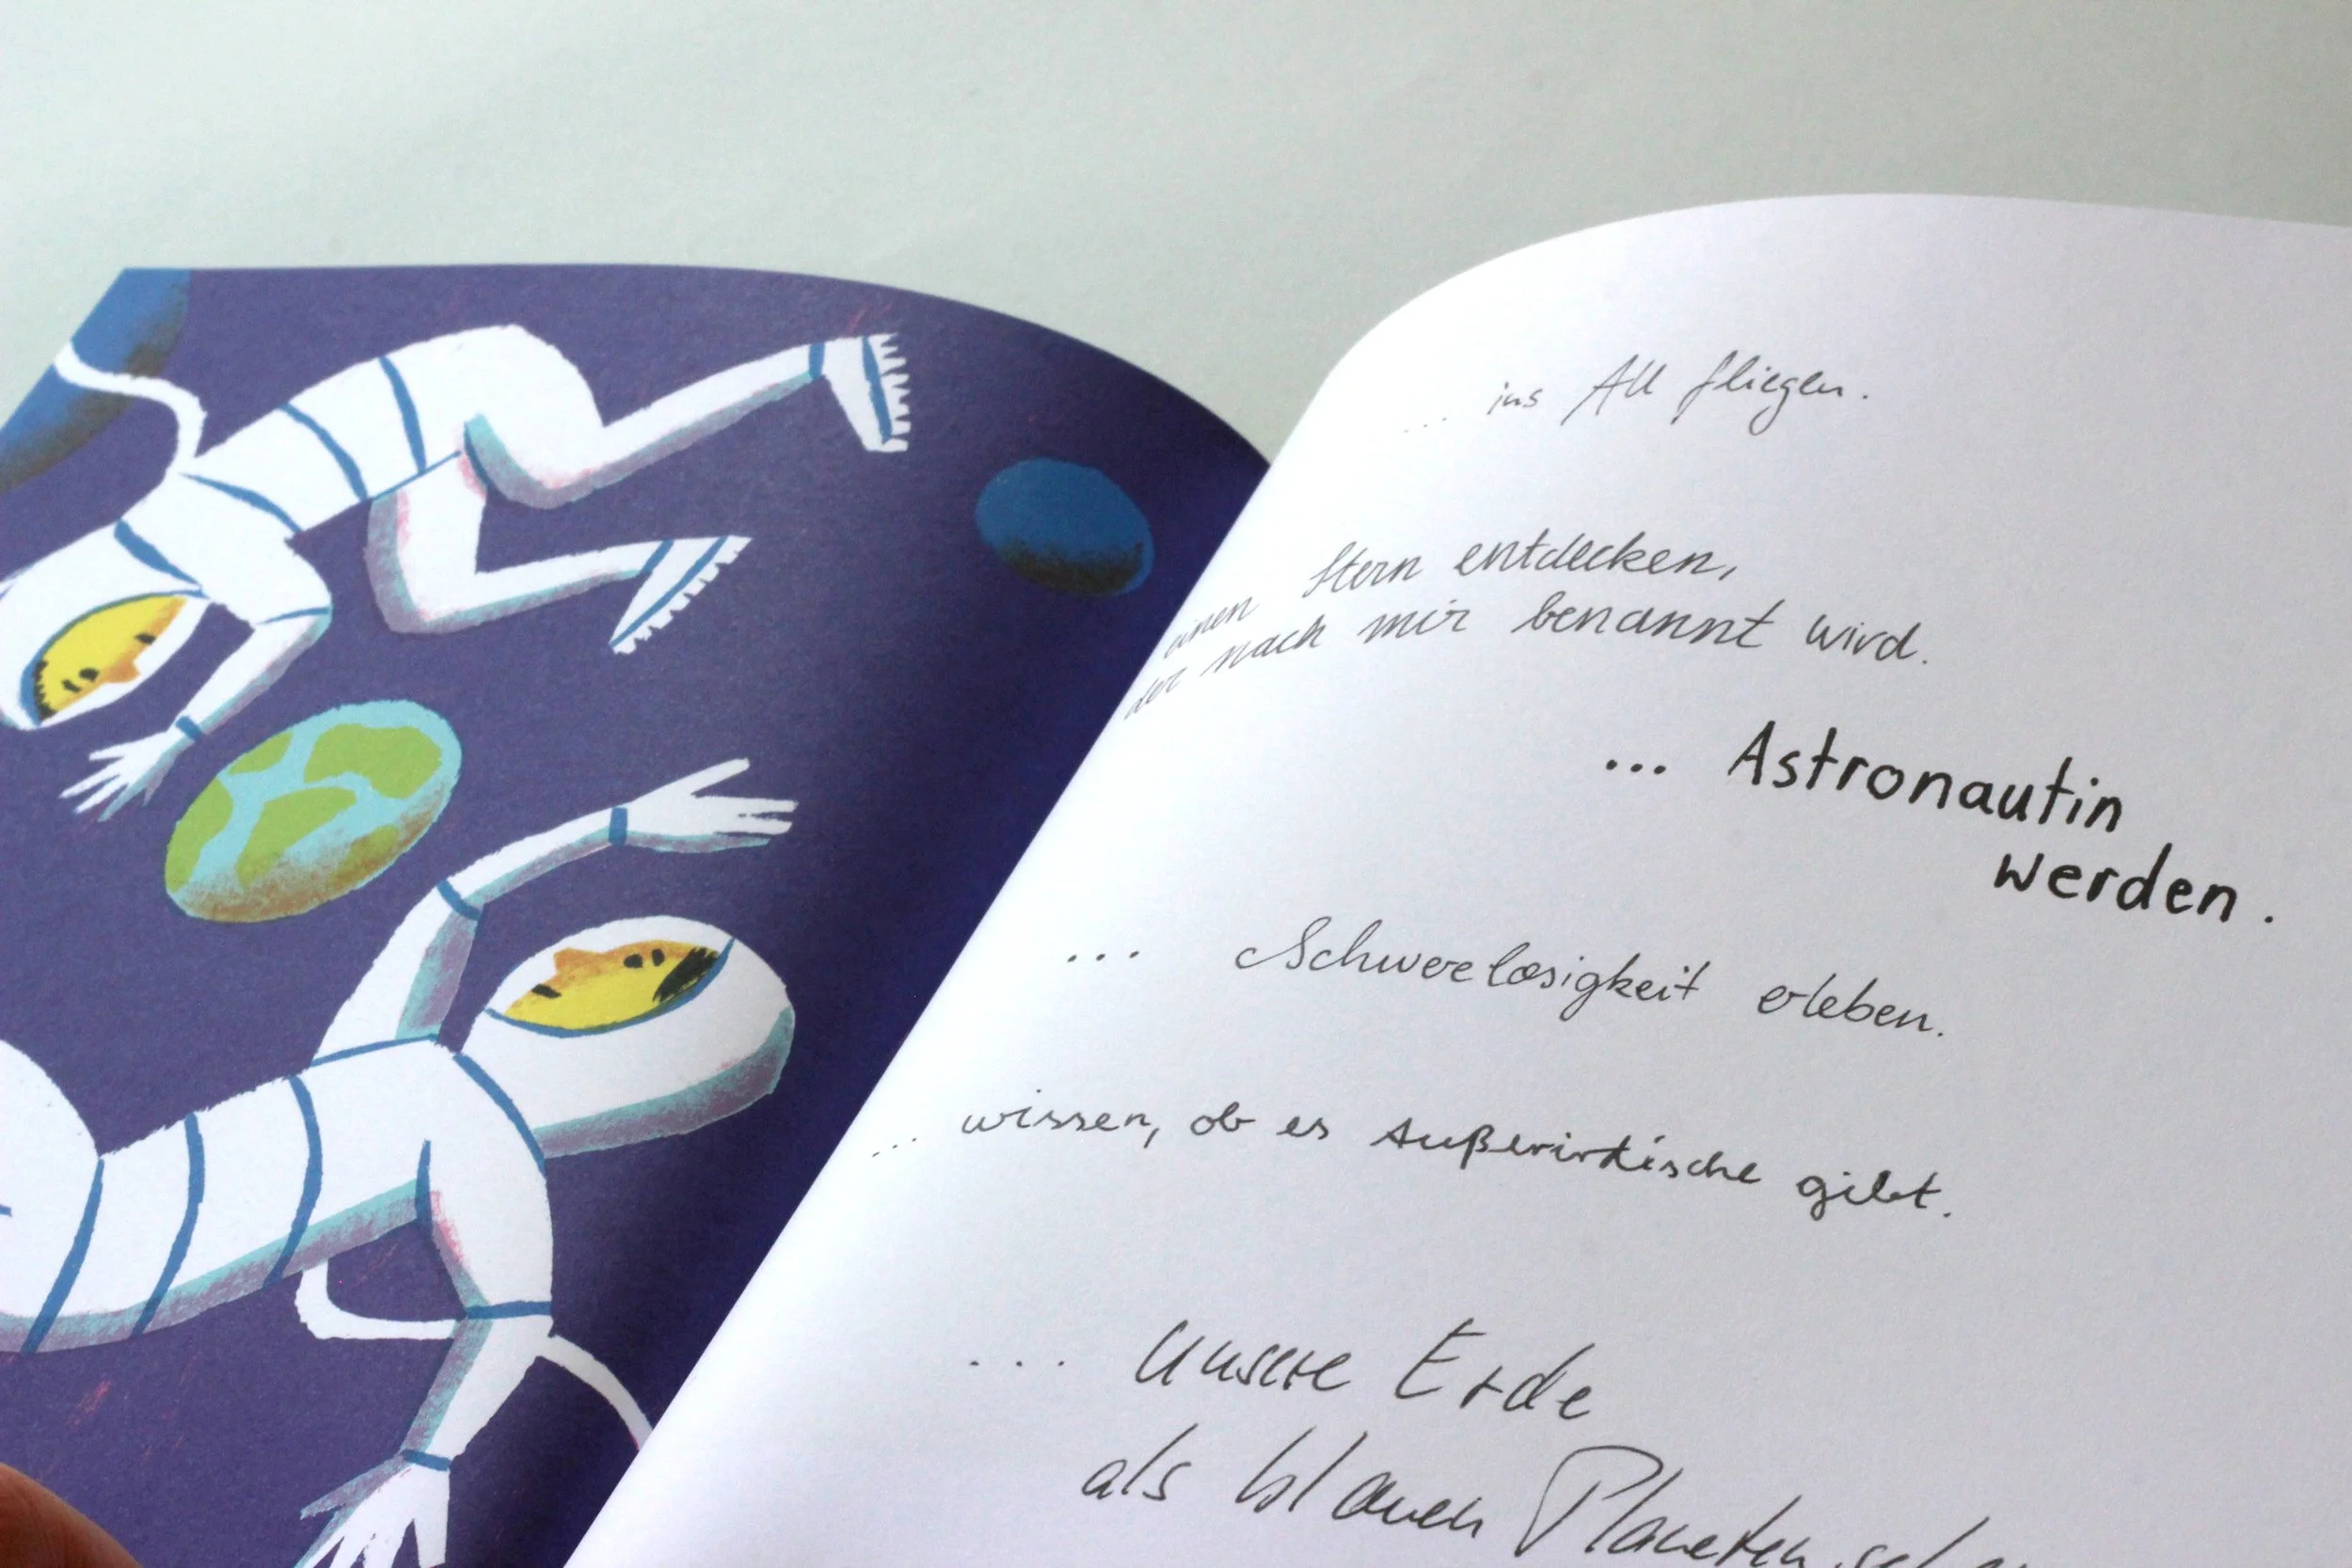 ... ins All fliegen.
einen Stern entdecken,
der nach mir benannt wird.
... Astronautin
werden.
... Schwerelosigkeit erleben.
... wissen, ob es Außerirdische gibt.
... unsere Erde
als blauen Planeten